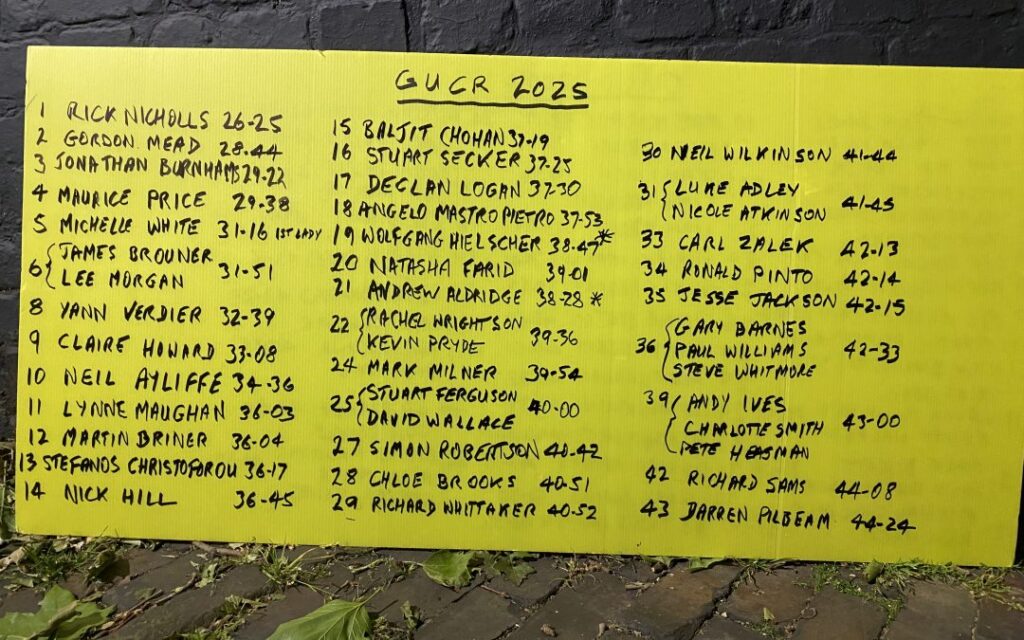 GUCR 2025
1 RICK NICHOLLS 26-25
2 GORDON MEAD 28-44
3 JONATHAN BURNHAMS 29-22
4 MAURICE PRICE 29-38
5 MICHELLE WHITE 31-16 1ST LADY
6 { JAMES BROUNER
LEE MORGAN 31-51
8 YANN VERDIER 32-39
9 CLAIRE HOWARD 33-08
10 NEIL AYLIFFE 34-36
11 LYNNE MAUGHAN 36-03
12 MARTIN BRINER 36-04
13 STEFANOS CHRISTOFOROU 36-17
14 NICK HILL 36-45
15 BALJIT CHOHAN 37-19
16 STUART SECKER 37-25
17 DECLAN LOGAN 37-30
18 ANGELO MASTROPIETRO 37-53
19 WOLFGANG HIELSCHER 38-47 *
20 NATASHA FARID 39-01
21 ANDREW ALDRIDGE 38-28 *
22 { RACHEL WRIGHTSON
KEVIN PRYDE 39-36
24 MARK MILNER 39-54
25 { STUART FERGUSON
DAVID WALLACE 40-00
27 SIMON ROBERTSON 40-42
28 CHLOE BROOKS 40-51
29 RICHARD WHITTAKER 40-52
30 NEIL WILKINSON 41-44
31 { LUKE ADLEY
NICOLE ATKINSON 41-45
33 CARL ZALEK 42-13
34 RONALD PINTO 42-14
35 JESSE JACKSON 42-15
36 { GARY BARNES
PAUL WILLIAMS 42-33
STEVE WHITMORE
39 { ANDY IVES
CHARLOTTE SMITH 43-00
PETE HEASMAN
42 RICHARD SAMS 44-08
43 DARREN PILBEAM 44-24